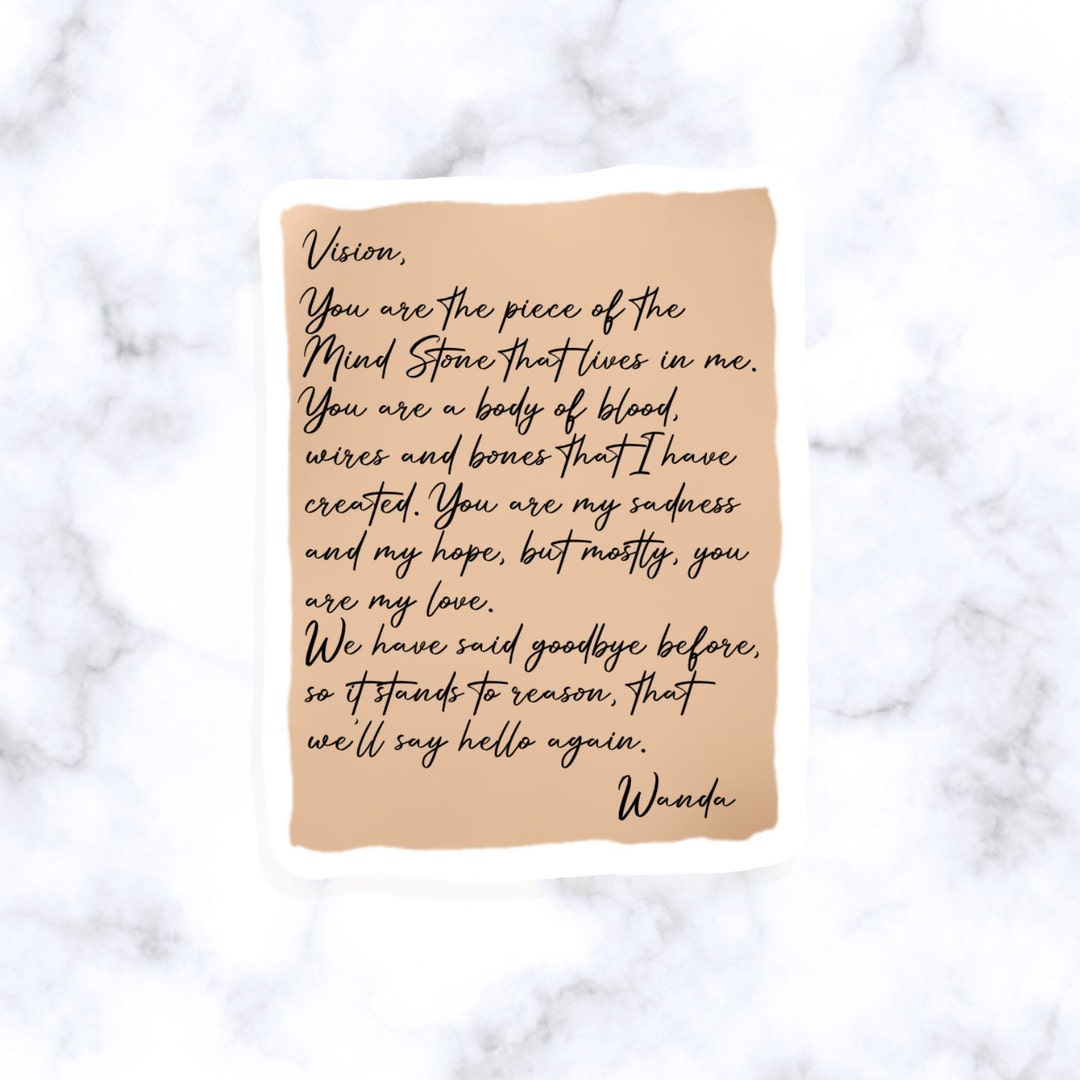 Vision,
You are the piece of the
Mind Stone that lives in me.
You are a body of blood,
wires and bones that I have
created. You are my sadness
and my hope, but mostly, you
are my love.
We have said goodbye before,
so it stands to reason, that
we'll say hello again.
Wanda